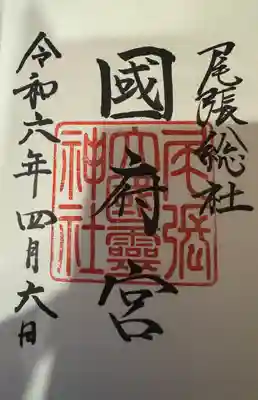 尾張総社
國府宮
尾張大國霊神社
令和六年四月六日